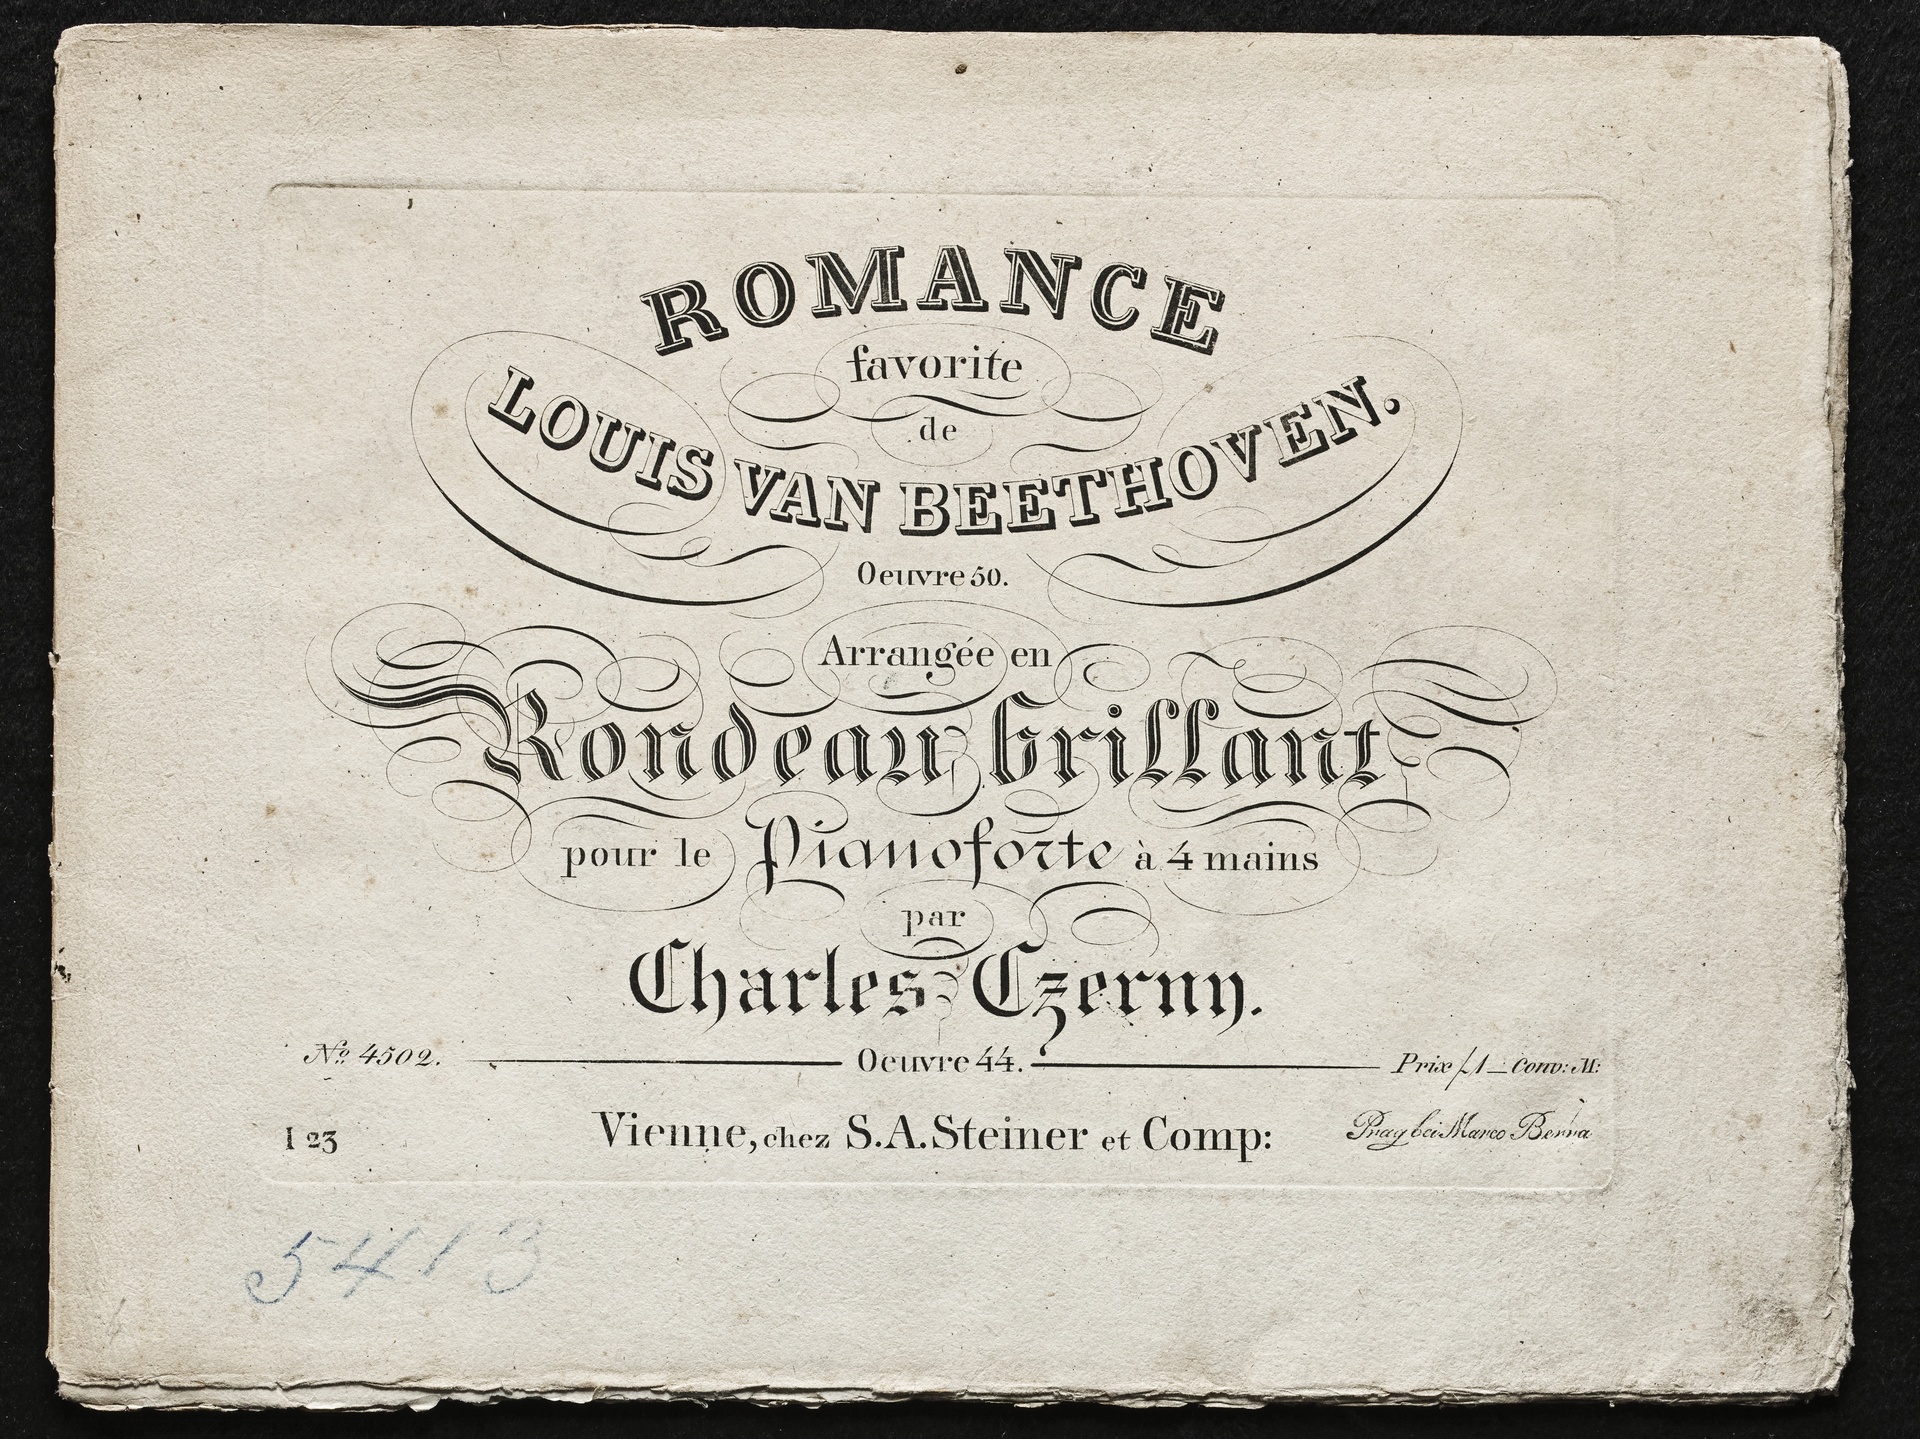 ROMANCE
favorite
de
LOUIS VAN BEETHOVEN.
Oeuvre 50.
Arrangée en
Rondeau brillant
pour le Pianoforte à 4 mains
par
Charles Czerny.
No. 4502. Oeuvre 44. Prix f 1 _ Conv: M:
I 23 Vienne, chez S. A. Steiner et Comp: Prag bei Marco Berra
5413